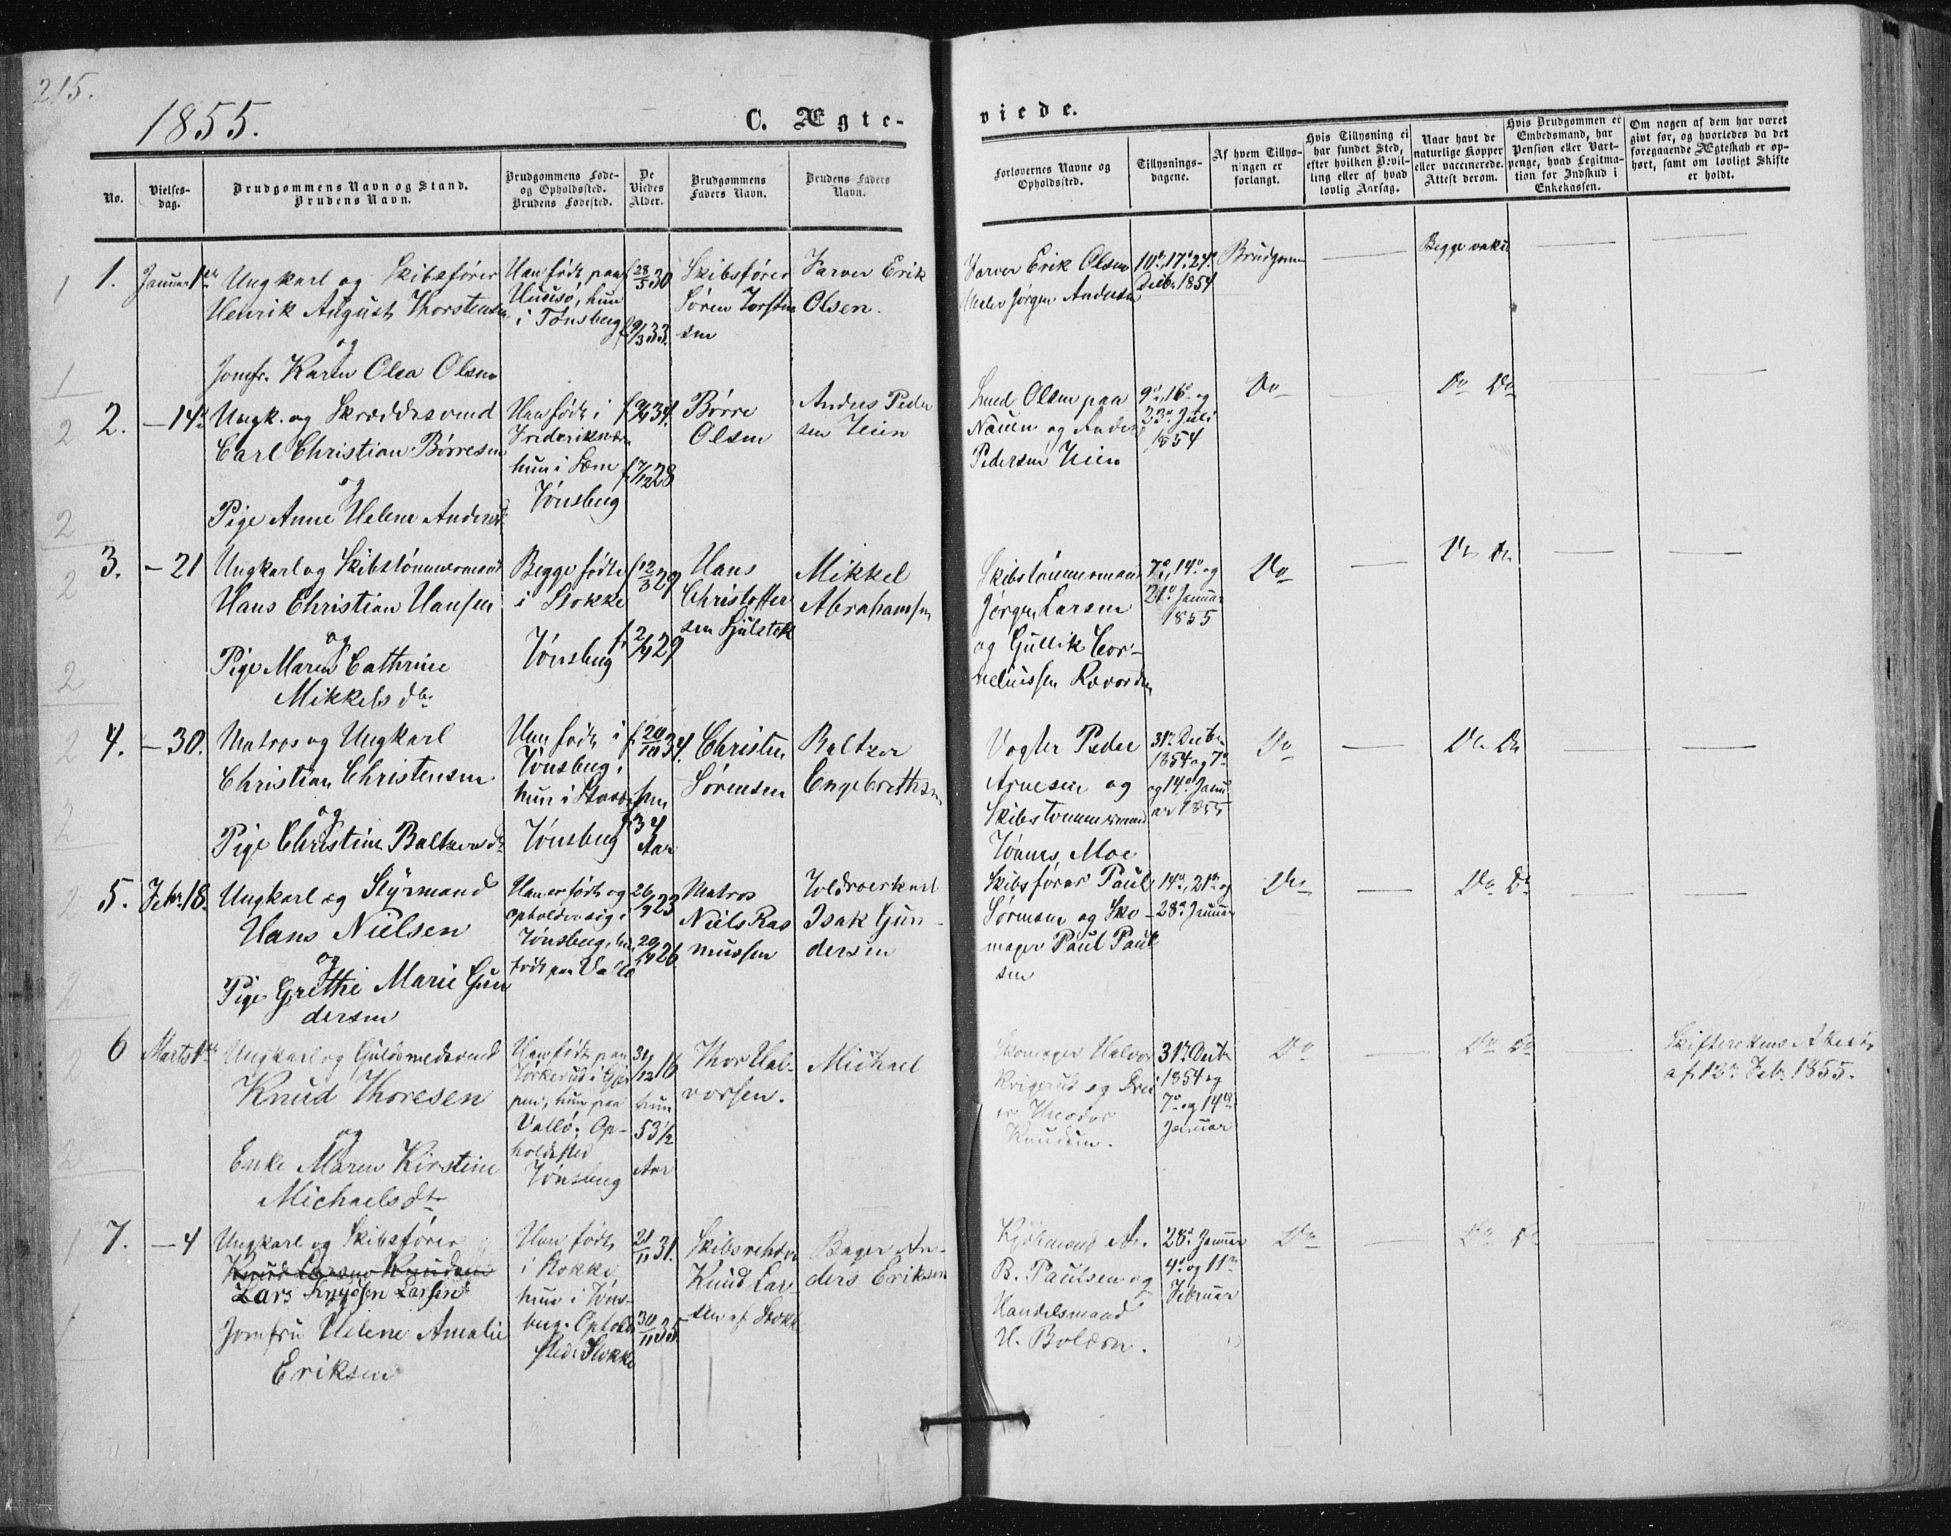 215.
1855.
C. Ægte-
viede.
No.
Vielses-
dag.
Brudgommens Navn og Stand.
Brudens Navn.
Brudgommens Føde-
og Opholdssted.
Brudens Fødested.
De
Viedes
Alder.
Brudgommens
Faders Navn.
Brudens Faders
Navn.
Forlovernes Navne og
Opholdssted.
Tillysnings-
dagene.
Af hvem Tillys-
ningen er
forlangt.
Hvis Tillysning ei
har fundet Sted,
efter hvilken Bevil-
ling eller af hvad
lovlig Aarsag.
Naar havt de
naturlige Kopper
eller vaccinerede.
Attest derom.
Hvis Brudgommen er
Embedsmand, har
Pension eller Vart-
penge, hvad Legitima-
tion for Indskud i
Enkekassen.
Om nogen af dem har været
gift før, og hvorledes da det
foregaaende Ægteskab er op-
hørt, samt om lovligt Skifte
er holdt.
1.
Januar 1ste
Ungkarl og Skibsfører
Henrik August Thorstensen
og
Jomfr. Karen Olea Olsen
Han født paa
Husøsø, hun
i Tønsberg
f 28/5 30
f 9/3 33.
Skibsfører
Søren Torsten
sen
Farver Erik
Olsen.
Farver Erik Olsen
Jørgen Andersen
10de, 17de, 24de
Decbr. 1854
Brudgommen
Begge vakc
2.
- 14de
Ungk. og Skræddersvend
Carl Christian Børresen
og
Pige Anne Helene Andersd.
Han født i
Frederiksværn
hun i Sem
Tønsberg
f 9/4 34.
f 7/12 28
Børre
Olsen
Anders Peder
sen Teien
Smed Olsen paa
Nauen og Anders
Pedersen Teien
9de, 16de og
23de Juli
1854
Do
Do Do
3.
- 21
Ungkarl og Skibstømmermand
Hans Christian Hansen
og
Pige Maren Cathrine
Mikkelsdtr
Begge fødte
i Stokke
Tønsberg
f 12/3 29
f 2/4 29
Hans
Christoffer
sen Hjulstok
Mikkel
Abrahamsen
Skibstømmermand
Jørgen Larsen
og Gullik Cor-
neliussen
7de, 14de og
21de Januar
1855
Do
Do Do
4.
- 30.
Matros og Ungkarl
Christian Christensen
og
Pige Christine Baltzersdtr
Han født i
Tønsberg,
hun i
Tønsberg
f 20/10 34.
hun
34
Aar
Christen
Sørensen
Baltzer
Engebrethsen
Vogter Peder
Arnesen og
Skibstømmermand
Tønnes Moe
31te Decbr
1854 og 7de
og 14de Janu
ar 1855
Do
Do Do
5.
Febr. 18.
Ungkarl og Styrmand
Hans Nielsen
og
Pige Grethe Marie Gun
dersen
Han er født og
opholder sig i
Tønsberg, hun
født paa Vallø
26/9 23
Matros
Niels Ras
mussen
Isak Gun-
dersen
Skibsfører Paul
Sørensen og Sko-
mager Paul Paul
sen
14de, 21de og
28de Januar
Do
Do Do
6
Marts 1ste
Ungkarl og Guldsmedsvend
Knud Thoresen
og
Enke Maren Kirstine
Michaelsdtr
Han født paa
i Gjer
pen, hun paa
Vallø. Op-
holdssted
Tønsberg
31/12 16
hun
53 1/2
Aar
Thor Hal-
vorsen.
Michael
Skomager Halvor
Krigerud og
Theodor
Knudsen.
31te Decbr
1854 og
7de og 14de
Januar
Do
Do Do
Skifterettens Attest
af 12te Febr. 1855.
7.
- 4
Ungkarl og Skibsfører
Knud Larsen Knudsen
Lars Knudsen Larsen
Jomfru Helene Amalie
Eriksen
Han født
i Stokke
hun i Tøns-
berg. Opholds
sted Stokke
21/11 31.
30/11 35
Skibsrehder
Knud Lar-
sen af Stokke
Bager An-
ders Eriksen
Kjøbmand A.
B. Paulsen og
Handelsmand
H. Bolærn.
28de Januar
4de og 11te
Februar
Do
Do Do